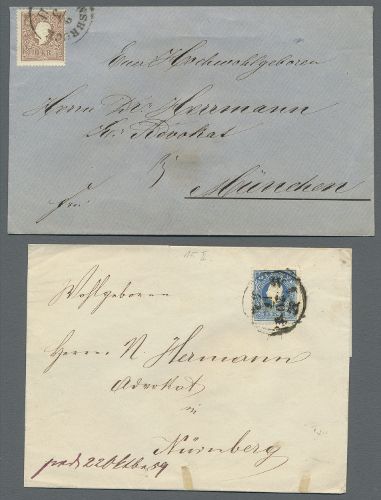 Euer Hochwohlgeboren
Herrn Dr. Herrmann
Kr. Advokat
München
frei
15 II
Wohlgeboren
Herrn N Hermann
Advokat
in
Nürnberg
22 Oktbr 59